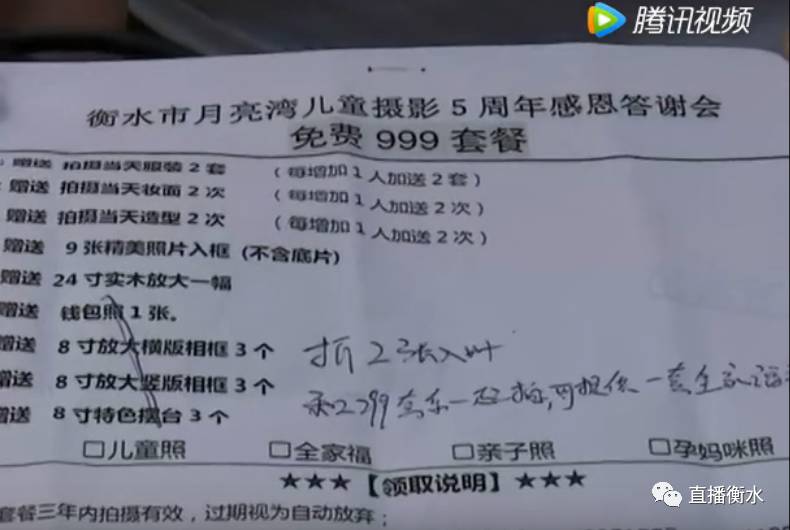 腾讯视频
衡水市月亮湾儿童摄影5周年感恩答谢会
免费999套餐
赠送 拍摄当天服装2套 (每增加1人加送2套)
赠送 拍摄当天妆面2次 (每增加1人加送2次)
赠送 拍摄当天造型2次 (每增加1人加送2次)
赠送 9张精美照片入框 (不含底片)
赠送 24寸实木放大一幅
赠送 钱包照1张。
赠送 8寸放大横版相框3个
赠送 8寸放大竖版相框3个
赠送 8寸特色摆台3个
折2张入册
和2799套系一起拍,可提供一套全家福
□儿童照 □全家福 □亲子照 □孕妈咪照
★★★【领取说明】★★★
套餐三年内拍摄有效，过期视为自动放弃；
直播衡水